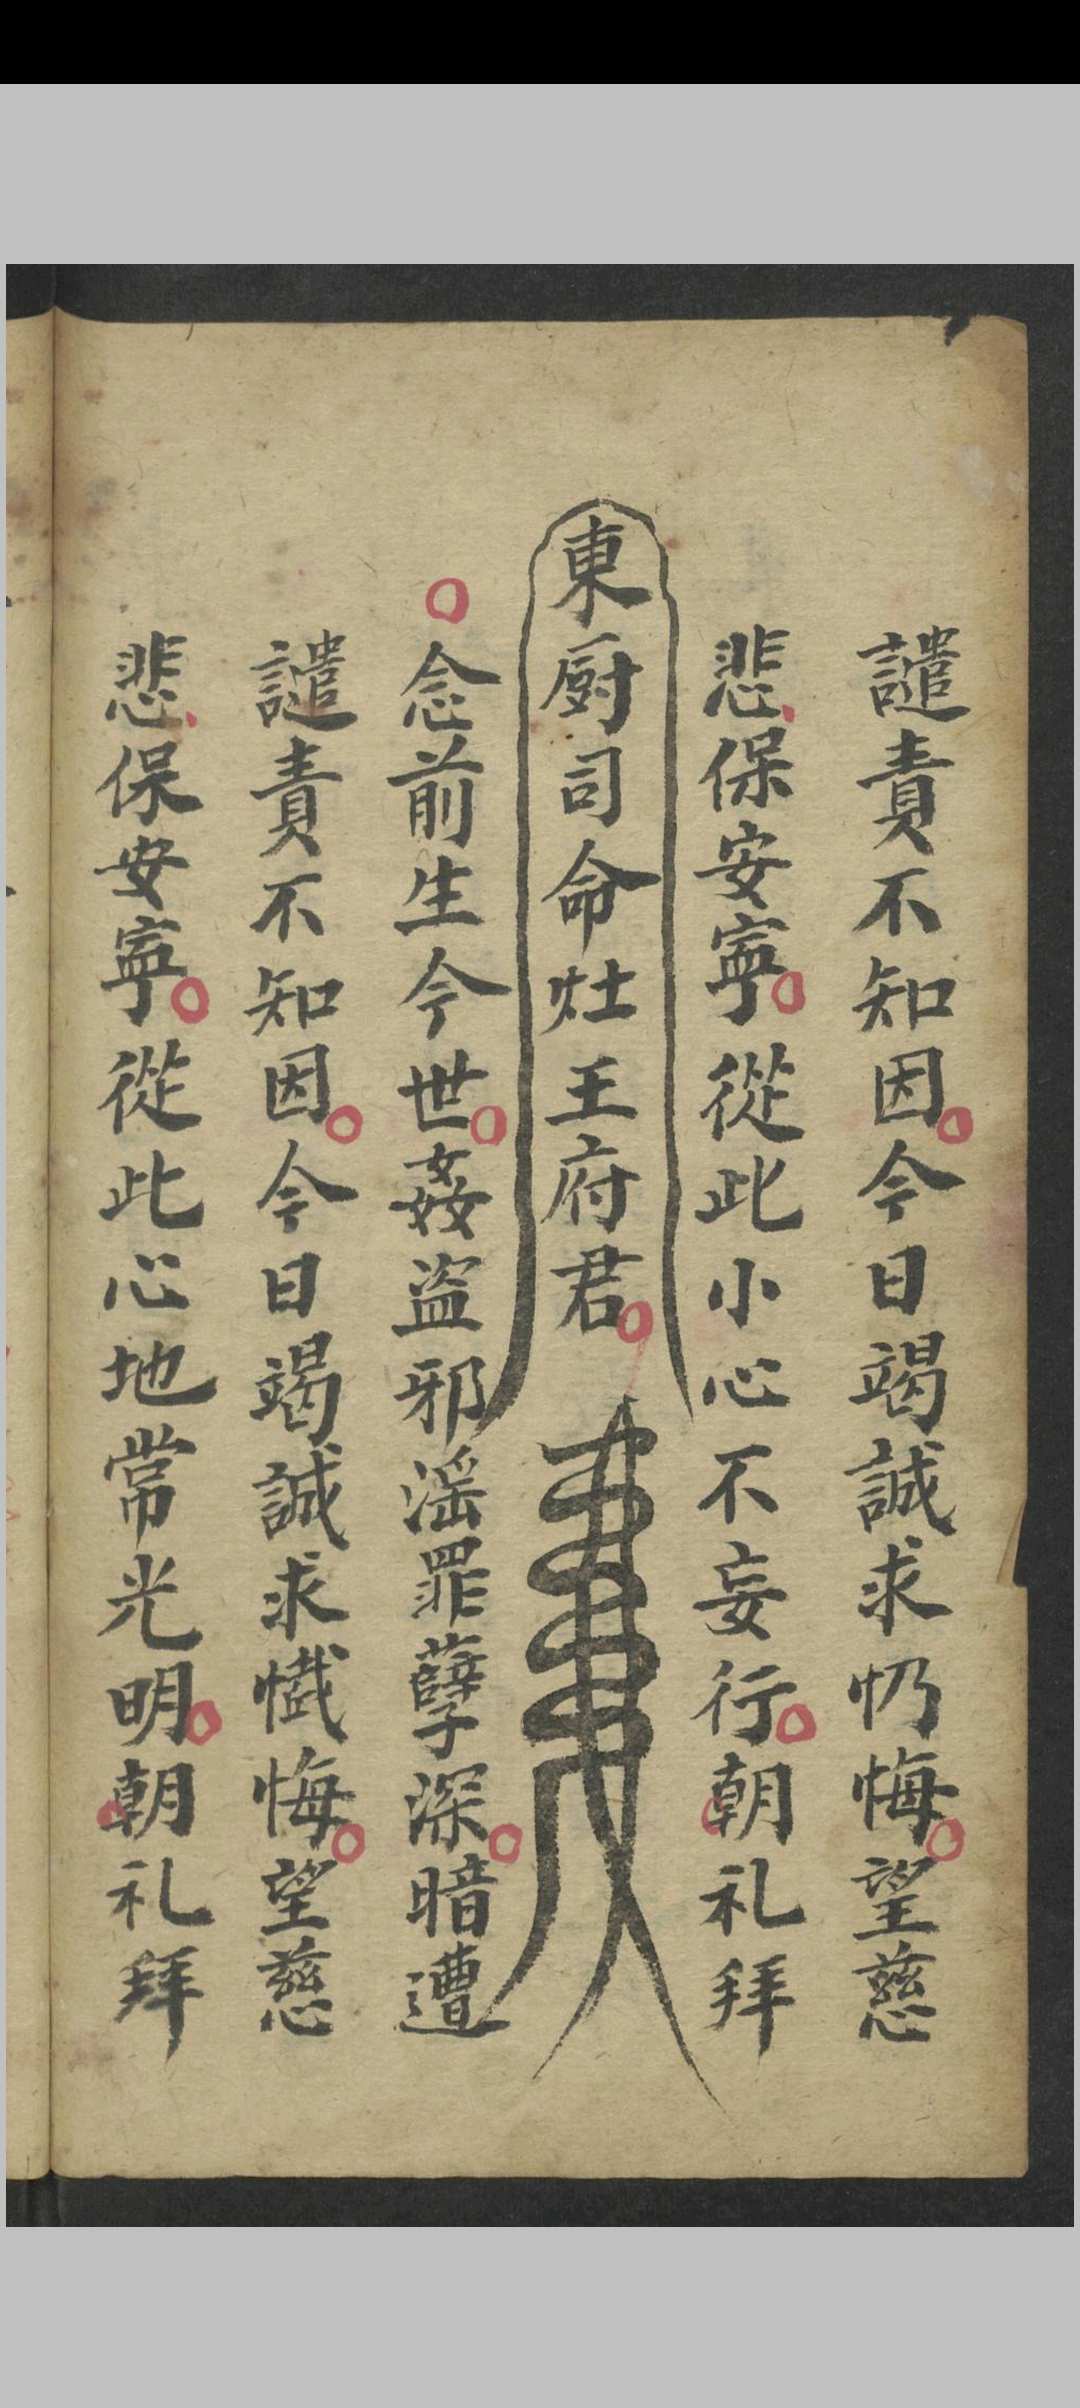 譴責不知因今日竭誠求忉悔望慈
悲保安寧從此小心不妄行朝礼拜
東厨司命灶王府君
念前生今世姦盗邪滛罪孽深暗遭
譴責不知因今日竭誠求懴悔望慈
悲保安寧從此心地常光明朝礼拜